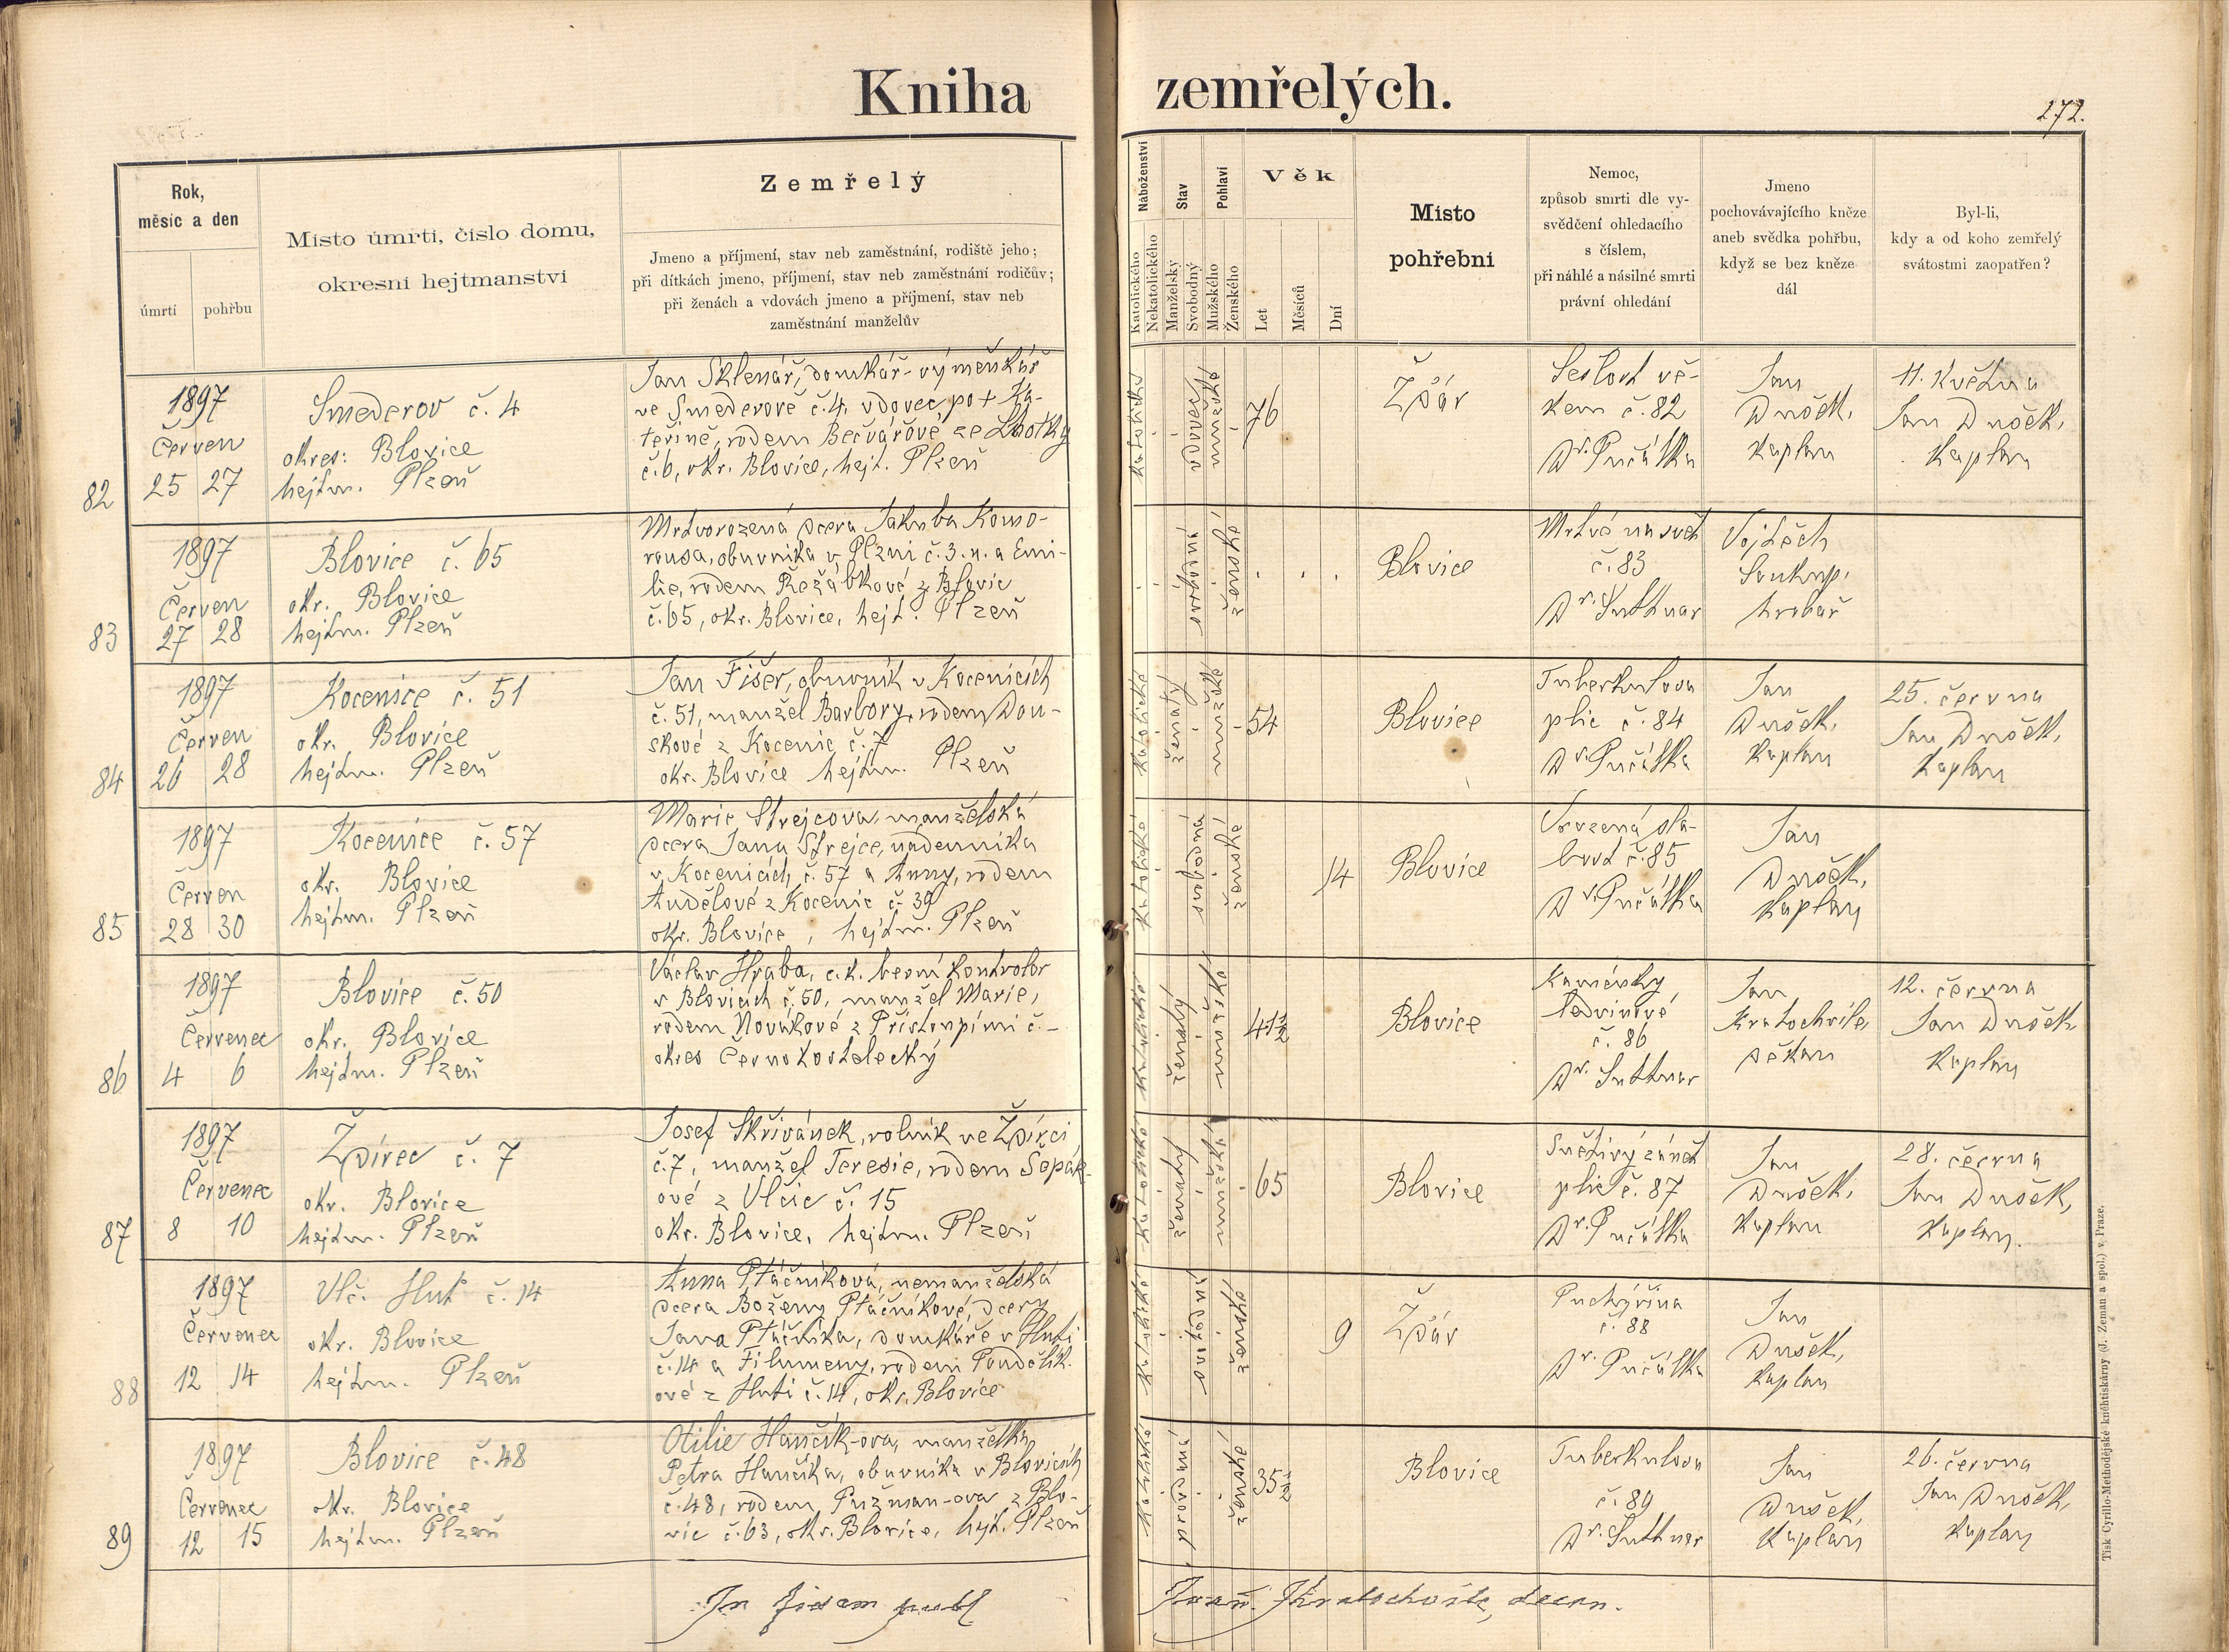 Kniha zemřelých.
272.
Rok,
měsíc a den
úmrtí
pohřbu
Místo úmrtí, číslo domu,
okresní hejtmanství
Zemřelý
Jmeno a příjmení, stav neb zaměstnání, rodiště jeho;
při dítkách jmeno, příjmení, stav neb zaměstnání rodičův;
při ženách a vdovách jmeno a příjmení, stav neb
zaměstnání manželův
Náboženství
Katolického
Nekatolického
Stav
Manželský
Svobodný
Pohlaví
Mužského
Ženského
Věk
Let
Měsíců
Dní
Místo
pohřební
Nemoc,
způsob smrti dle vy-
svědčení ohledacího
s číslem,
při náhlé a násilné smrti
právní ohledání
Jmeno
pochovávajícího kněze
aneb svědka pohřbu,
když se bez kněze
dál
Byl-li,
kdy a od koho zemřelý
svátostmi zaopatřen?
82
1897
Červen
25 27
Smederov č. 4
okres: Blovice
hejtm. Plzeň
Jan Sklenář, domkář-výměnkář
ve Smederově č. 4, vdovec po + Ka-
teřině, rodem Bečvářové ze Lhotky
č. 6, okr. Blovice, hejt. Plzeň
katolické
vdovec
mužské
76
Žďár
Sešlost vě-
kem č. 82
Dr. Pučálka
Jan
Dušek,
kaplan
11. Května
Jan Dušek,
kaplan
83
1897
Červen
27 28
Blovice č. 65
okr. Blovice
hejtm. Plzeň
Mrtvorozená dcera Jakuba Komo-
rousa, obuvníka v Plzni č. 3. n. a Emi-
lie, rodem Řežábkové z Blovic
č. 65, okr. Blovice, hejt. Plzeň
svobodná
ženské
Blovice
Mrtvé na svět
č. 83
Dr. Suttnar
Vojtěch
Soukup,
hrobař
84
1897
Červen
26 28
Kocenice č. 51
okr. Blovice
hejtm. Plzeň
Jan Fišer, obuvník v Kocenicích
č. 51, manžel Barbory, rodem Dou-
skové z Kocenic č. 7
okr. Blovice hejtm. Plzeň
katolické
ženatý
mužské
54
Blovice
Tuberkulosa
plic č. 84
Dr. Pučálka
Jan
Dušek,
kaplan
25. června
Jan Dušek,
kaplan
85
1897
Červen
28 30
Kocenice č. 57
okr. Blovice
hejtm. Plzeň
Marie Strejcova, manželská
dcera Jana Strejce, nádenníka
v Kocenicích, č. 57 a Anny, rodem
Andělové z Kocenic č. 39
okr. Blovice, hejtm. Plzeň
katolické
svobodná
ženské
14
Blovice
Vrozená sla-
bost č. 85
Dr. Pučálka
Jan
Dušek,
kaplan
86
1897
Červenec
4 6
Blovice č. 50
okr. Blovice
hejtm. Plzeň
Václav Hraba, c. k. berní kontrolor
v Blovicích č. 50, manžel Marie,
rodem Novákové z Přistoupimi č. -
okres Černokostelecký
katolické
ženatý
mužské
41½
Blovice
Kaménky
ledvinové
č. 86
Dr. Suttnar
Jan
Kratochvile,
děkan
12. června
Jan Dušek
kaplan
87
1897
Červenec
8 10
Žďírec č. 7
okr. Blovice
hejtm. Plzeň
Josef Skřivánek, rolník ve Žďírci
č. 7, manžel Teresie, rodem Šepák-
ové z Vlčic č. 15
okr. Blovice, hejtm. Plzeň
katolické
ženatý
mužské
65
Blovice
zánět
plic č. 87
Dr. Pučálka
Jan
Dušek,
kaplan
28. června
Jan Dušek,
kaplan.
88
1897
Červenec
12 14
Vlč. Huť č. 14
okr. Blovice
hejtm. Plzeň
Anna Ptáčníková, nemanželská
dcera Boženy Ptáčníkové, dcery
Jana Ptáčníka, domkáře v Huti
č. 14 a Filumeny, rodem Pondělík-
ové z Huti č. 14, okr. Blovice
katolické
svobodná
ženské
9
Žďár
Puchýřina
č. 88
Dr. Pučálka
Jan
Dušek,
kaplan
89
1897
Červenec
12 15
Blovice č. 48
okr. Blovice
hejtm. Plzeň
Otilie Hančík-ova, manželka
Petra Hančíka, obuvníka v Blovicích
č. 48, rodem Pužman-ova z Blo-
vic č. 63, okr. Blovice, hejt. Plzeň
katolické
provdaná
ženské
35½
Blovice
Tuberkulosa
č. 89
Dr. Suttnar
Jan
Dušek,
kaplan
26. června
Jan Dušek,
kaplan
In fidem publ Joan. Kratochvile, decan.
Tisk Cyrillo-Methodějské knihtiskárny (J. Zeman a spol.) v Praze.